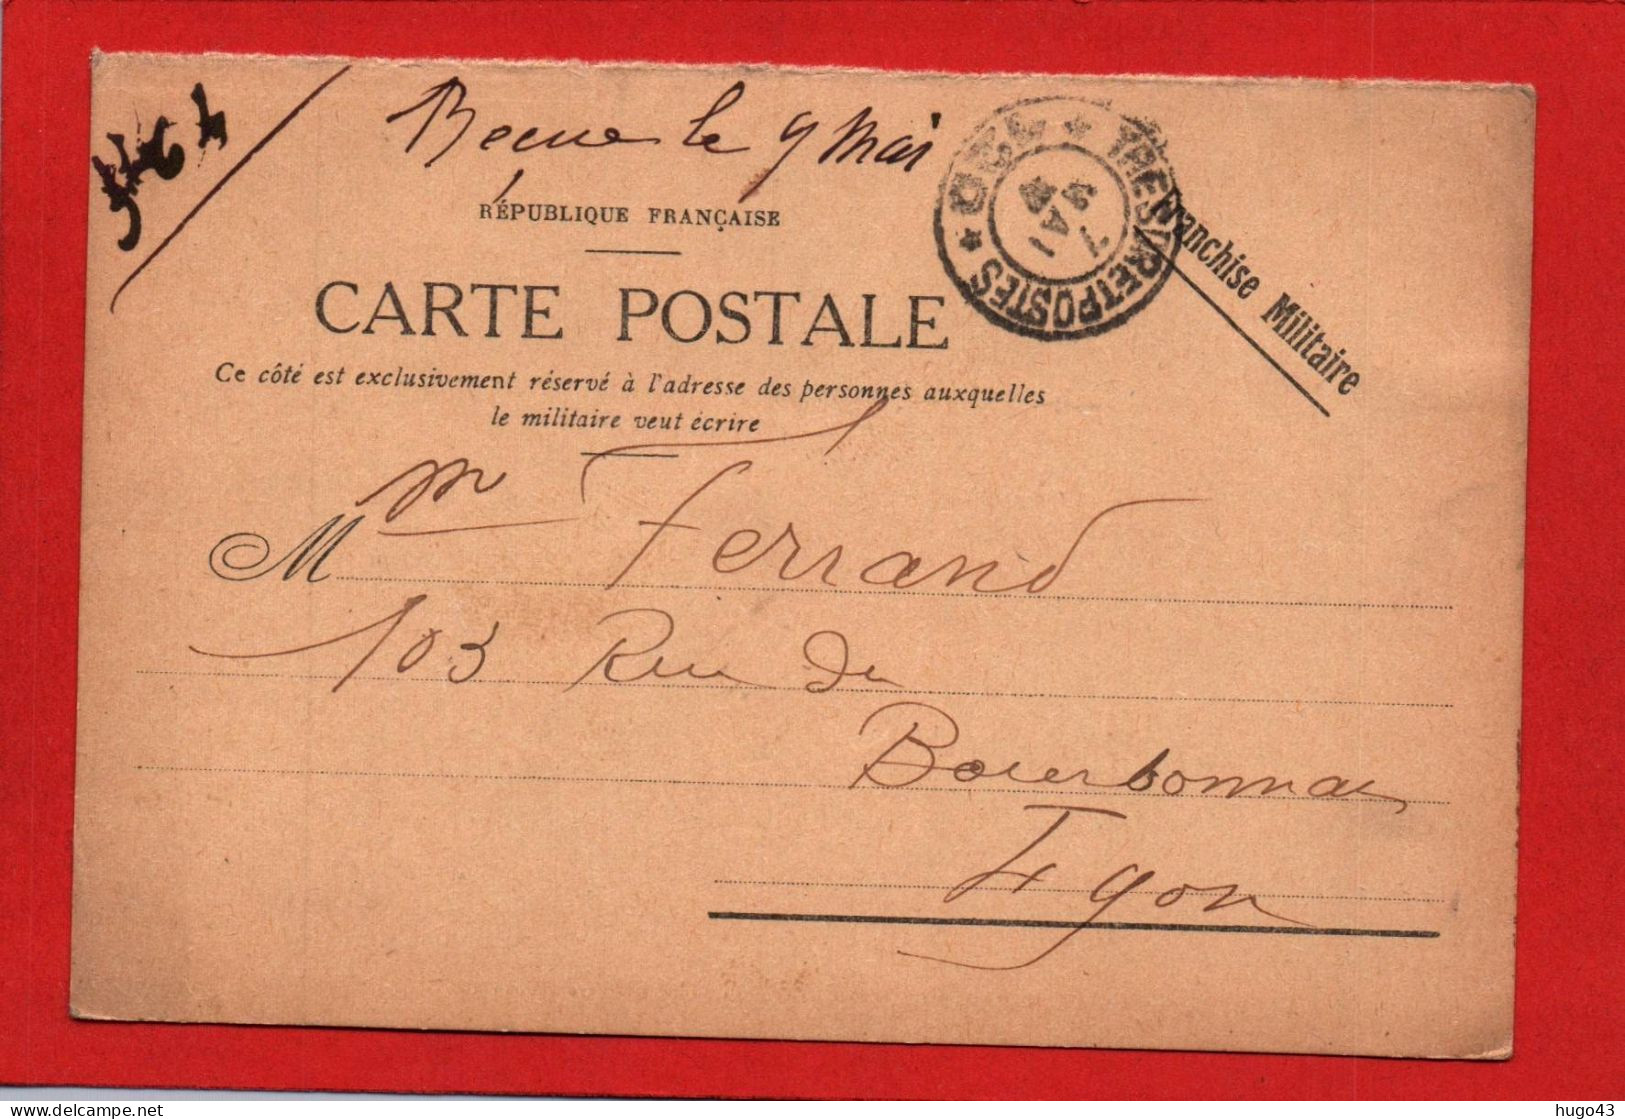 Recue le 9 Mai
RÉPUBLIQUE FRANÇAISE
CARTE POSTALE
Ce côté est exclusivement réservé à l'adresse des personnes auxquelles
le militaire veut écrire
TRESOR ET POSTES
7
MAI
Franchise Militaire
M m Ferrand
103 Rue du
Bourbonnais
Lyon
Delcampe.net
hugo43